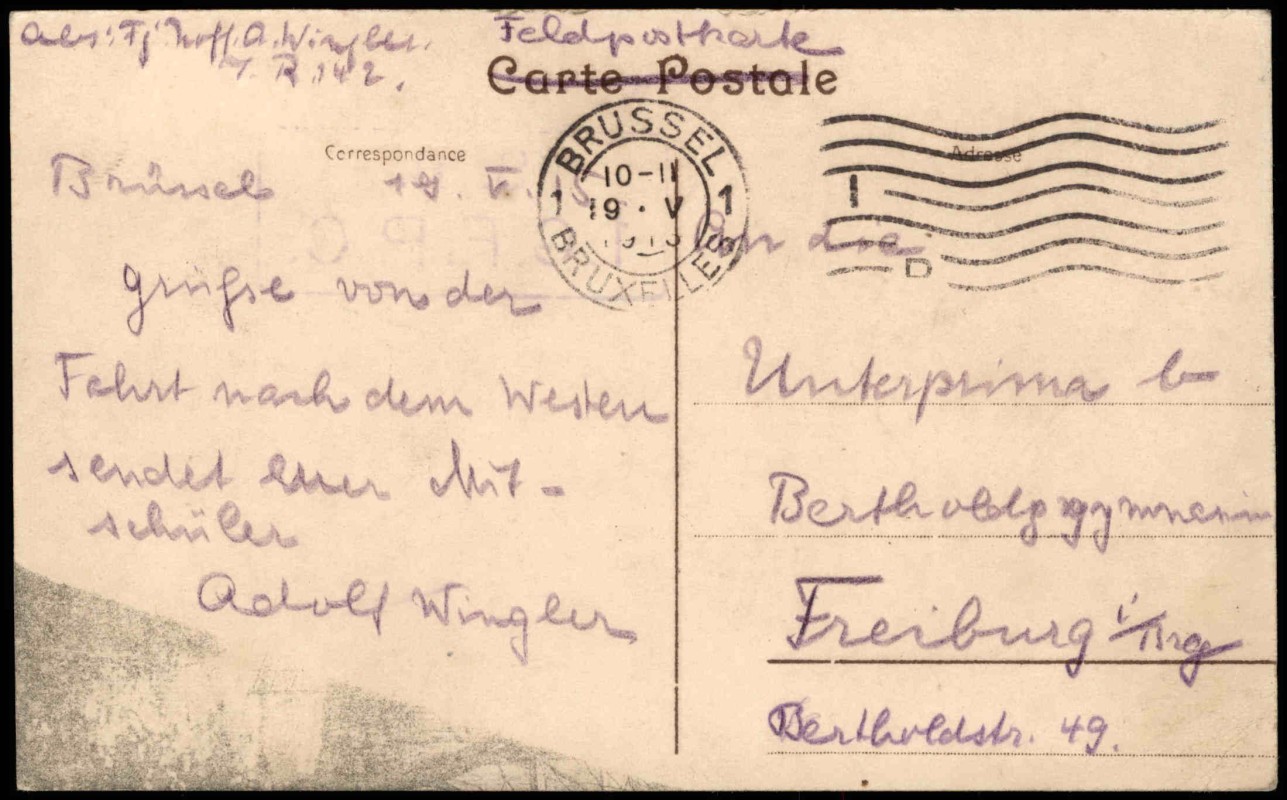 Abs: Fj. Hoff. A. Wingler.
I. R. 142.
Feldpostkarte
Carte Postale
Correspondance
Adresse
BRÜSSEL
10-11
1 19 · V 1
BRUXELLES
Brüssel 19. V.
Grüße von der
Fahrt nach dem Westen
sendet euer Mit-
schüler
Adolf Wingler
An die
Unterprima b
Bertholdgymnasium
Freiburg i/Brg
Bertholdstr. 49.